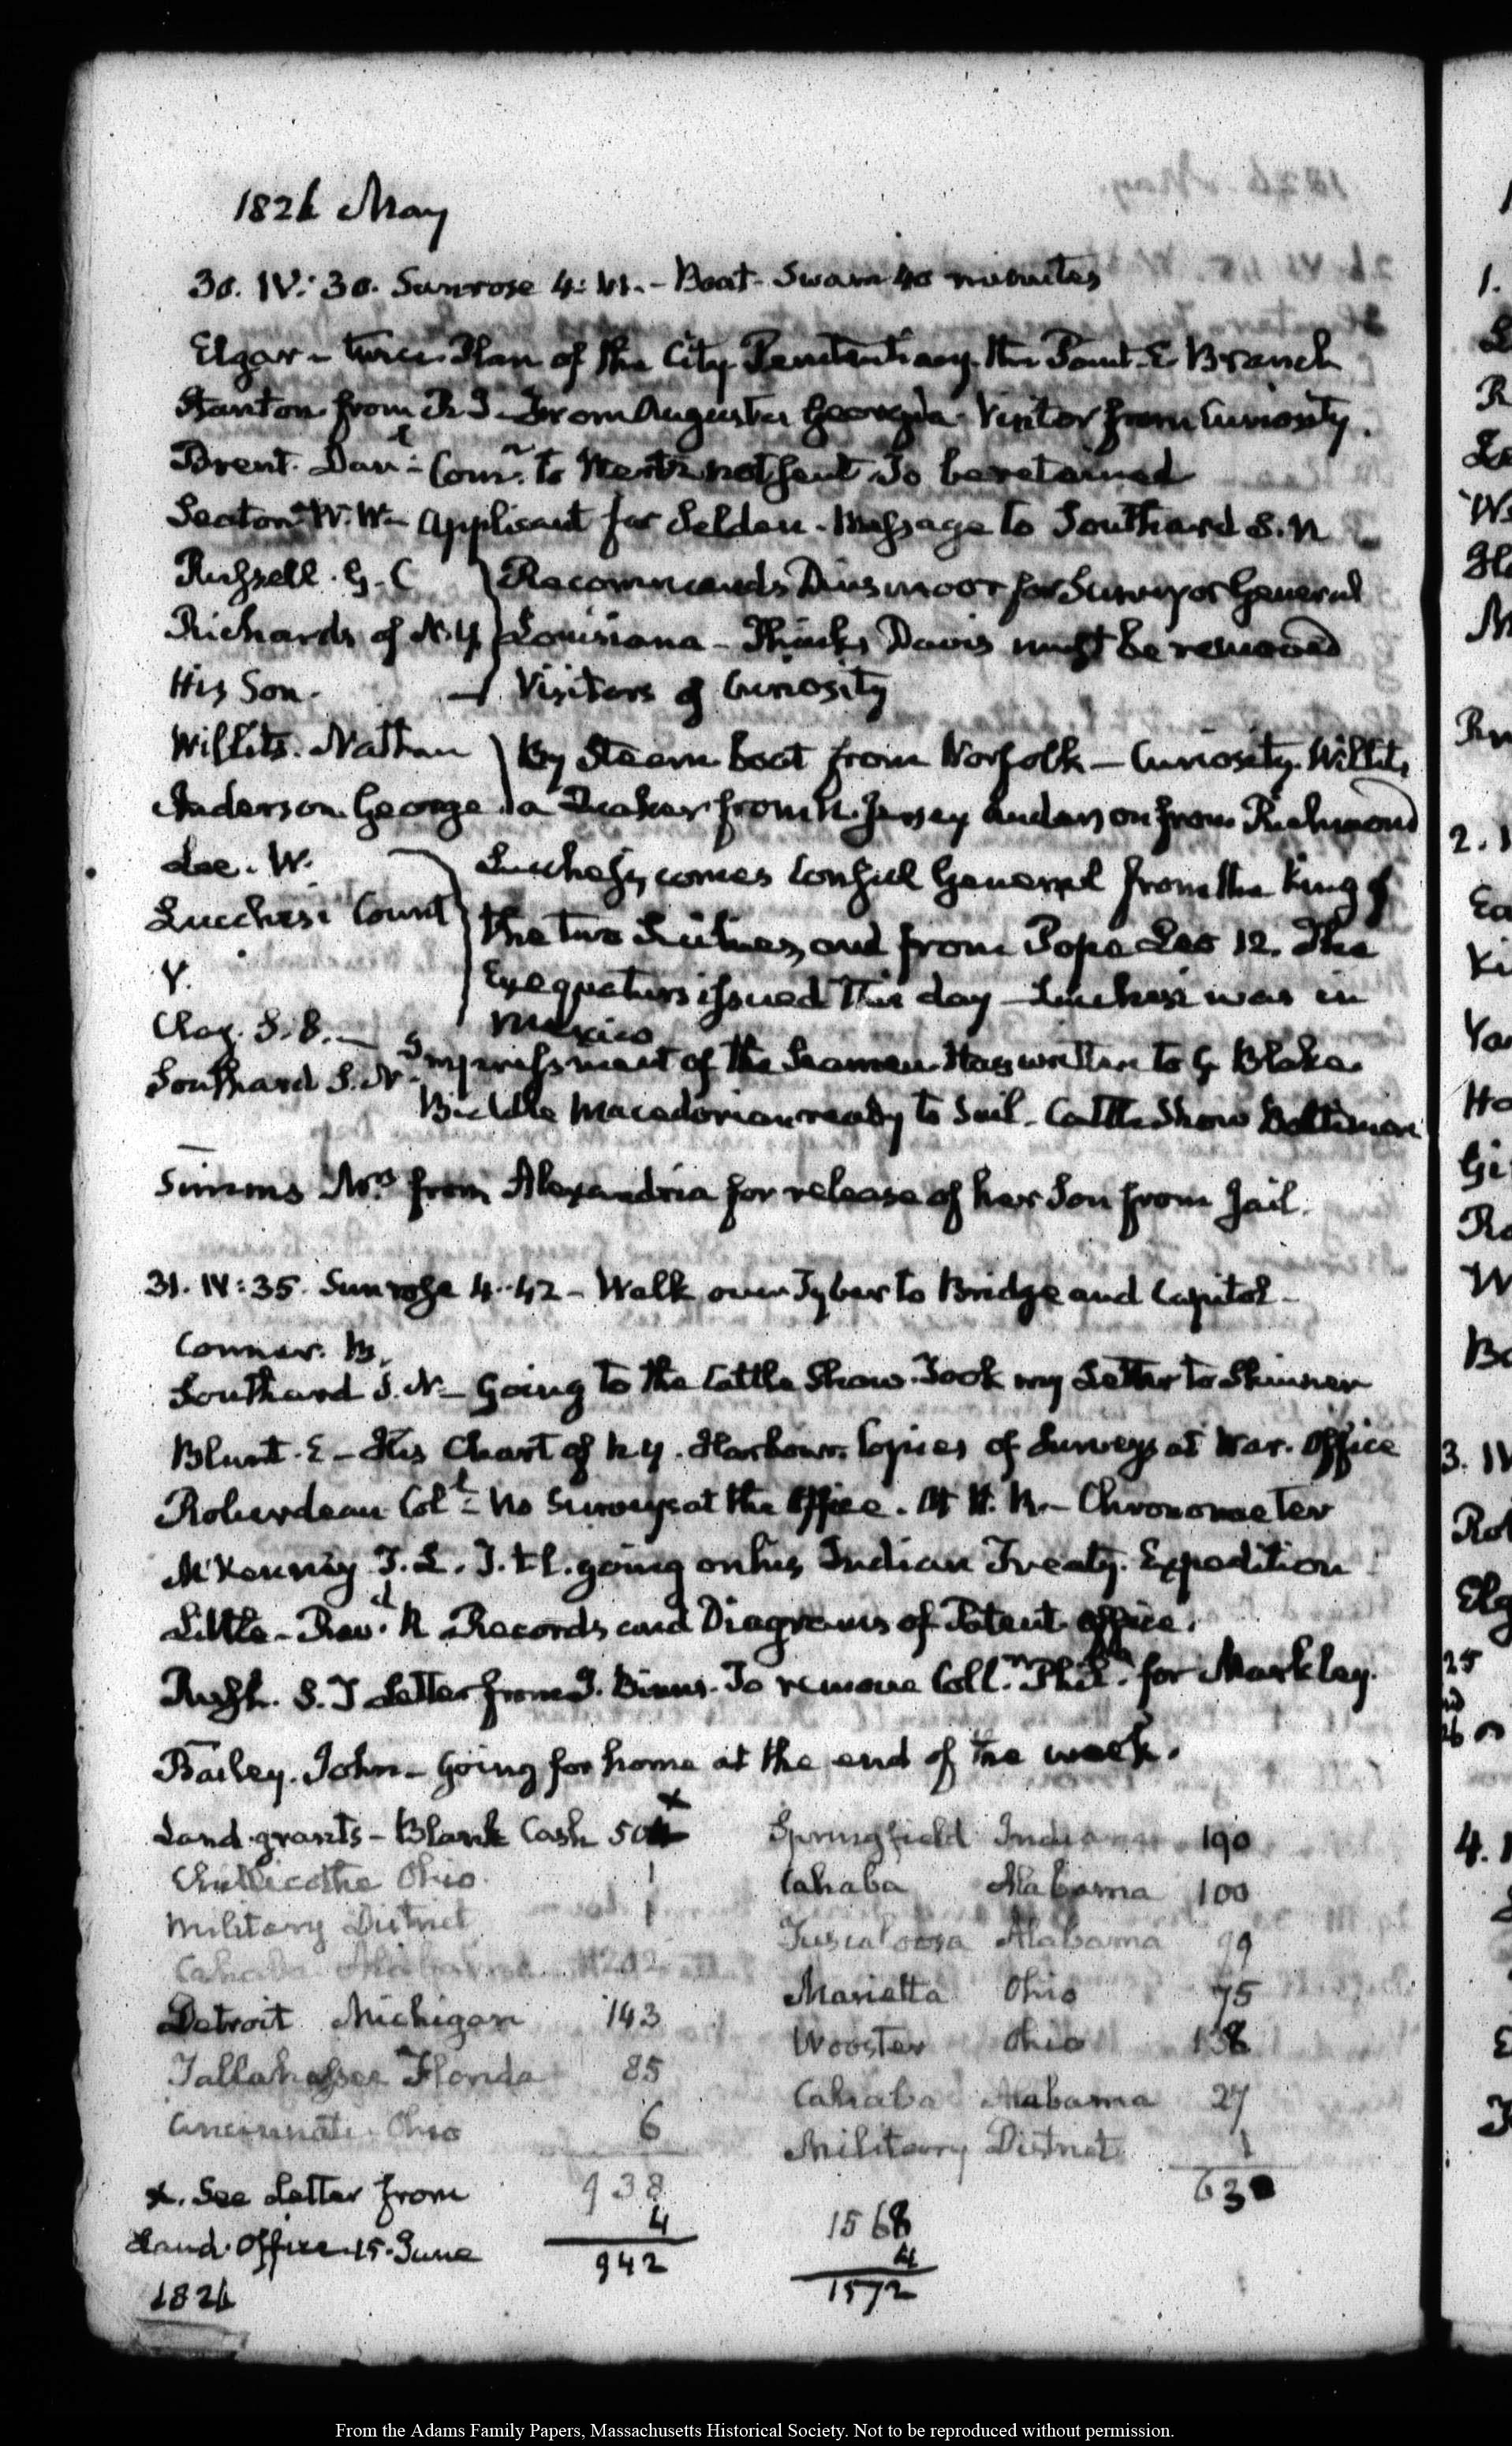 1826 May
30. IV: 30. Sunrose 4: 41. - Boat - Swam 40 minutes
Elgar - twice Plan of the City Penitentiary. the Point. E Branch
Stanton from R I - From Augusta Georgia - Visitor from Curiosity.
Brent. Danl - Comn. to not sent. To be retained
Seaton W. W - Applicant for Selden. Message to Southard S. N
Russell. G. C } Recommends Dinsmoor for Surveyor General
Richards of N.Y } Louisiana - Thinks Davis must be removed
His Son. - } Visitors of Curiosity
Willits. Nathan } By Steam boat from Norfolk - Curiosity. Willits
Anderson George } a Quaker from N. Jersey Anderson from Richmond
Lee. W.
Lucchesi Count } Luchesi, comes Consul General from the King of
the two Sicilies, and from Pope Leo 12. The
Y. } Exequaturs issued this day - Luchesi was in
Mexico
Clay. S. S. -
Southard S. N - Impressment of the Seamen. Has written to G. Blake.
Biddle Macedonian ready to Sail. Cattle Show Baltimore
Simms Mrs from Alexandria for release of her Son from Jail.
31. IV: 35. Sunrose 4. 42 - Walk over Tyber to Bridge and Capitol -
Conner. B.
Southard S. N - Going to the Cattle Show. Took my Letter to Skinner
Blunt. E - His Chart of N.Y. Harbour. Copies of Surveys at War. Office
Roberdeau Colt - No Surveys at the Office. Chronometer
McKenney T. L. going on his Indian Treaty. Expedition
Little - Revd. R Records and Diagrams of Patent office.
Rush. S. T Letter from J. Binns. To remove Colln. Phila. for Markley.
Bailey. John - Going for home at the end of the week.
Land. grants - Blank Cash x Springfield Indiana 190
Chillicothe Ohio 1 Cahaba Alabama 100
Military District 1 Tuscaloosa Alabama 99
Cahaba Alabama 202 Marietta Ohio 75
Detroit Michigan 143 Wooster Ohio 138
Tallahassee Florida 85 Cahaba Alabama 27
Cincinnati Ohio 6 Military District 1
x. See Letter from 938 630
Land. Office 15. June 4 1568
1826 942 4
1572
From the Adams Family Papers, Massachusetts Historical Society. Not to be reproduced without permission.